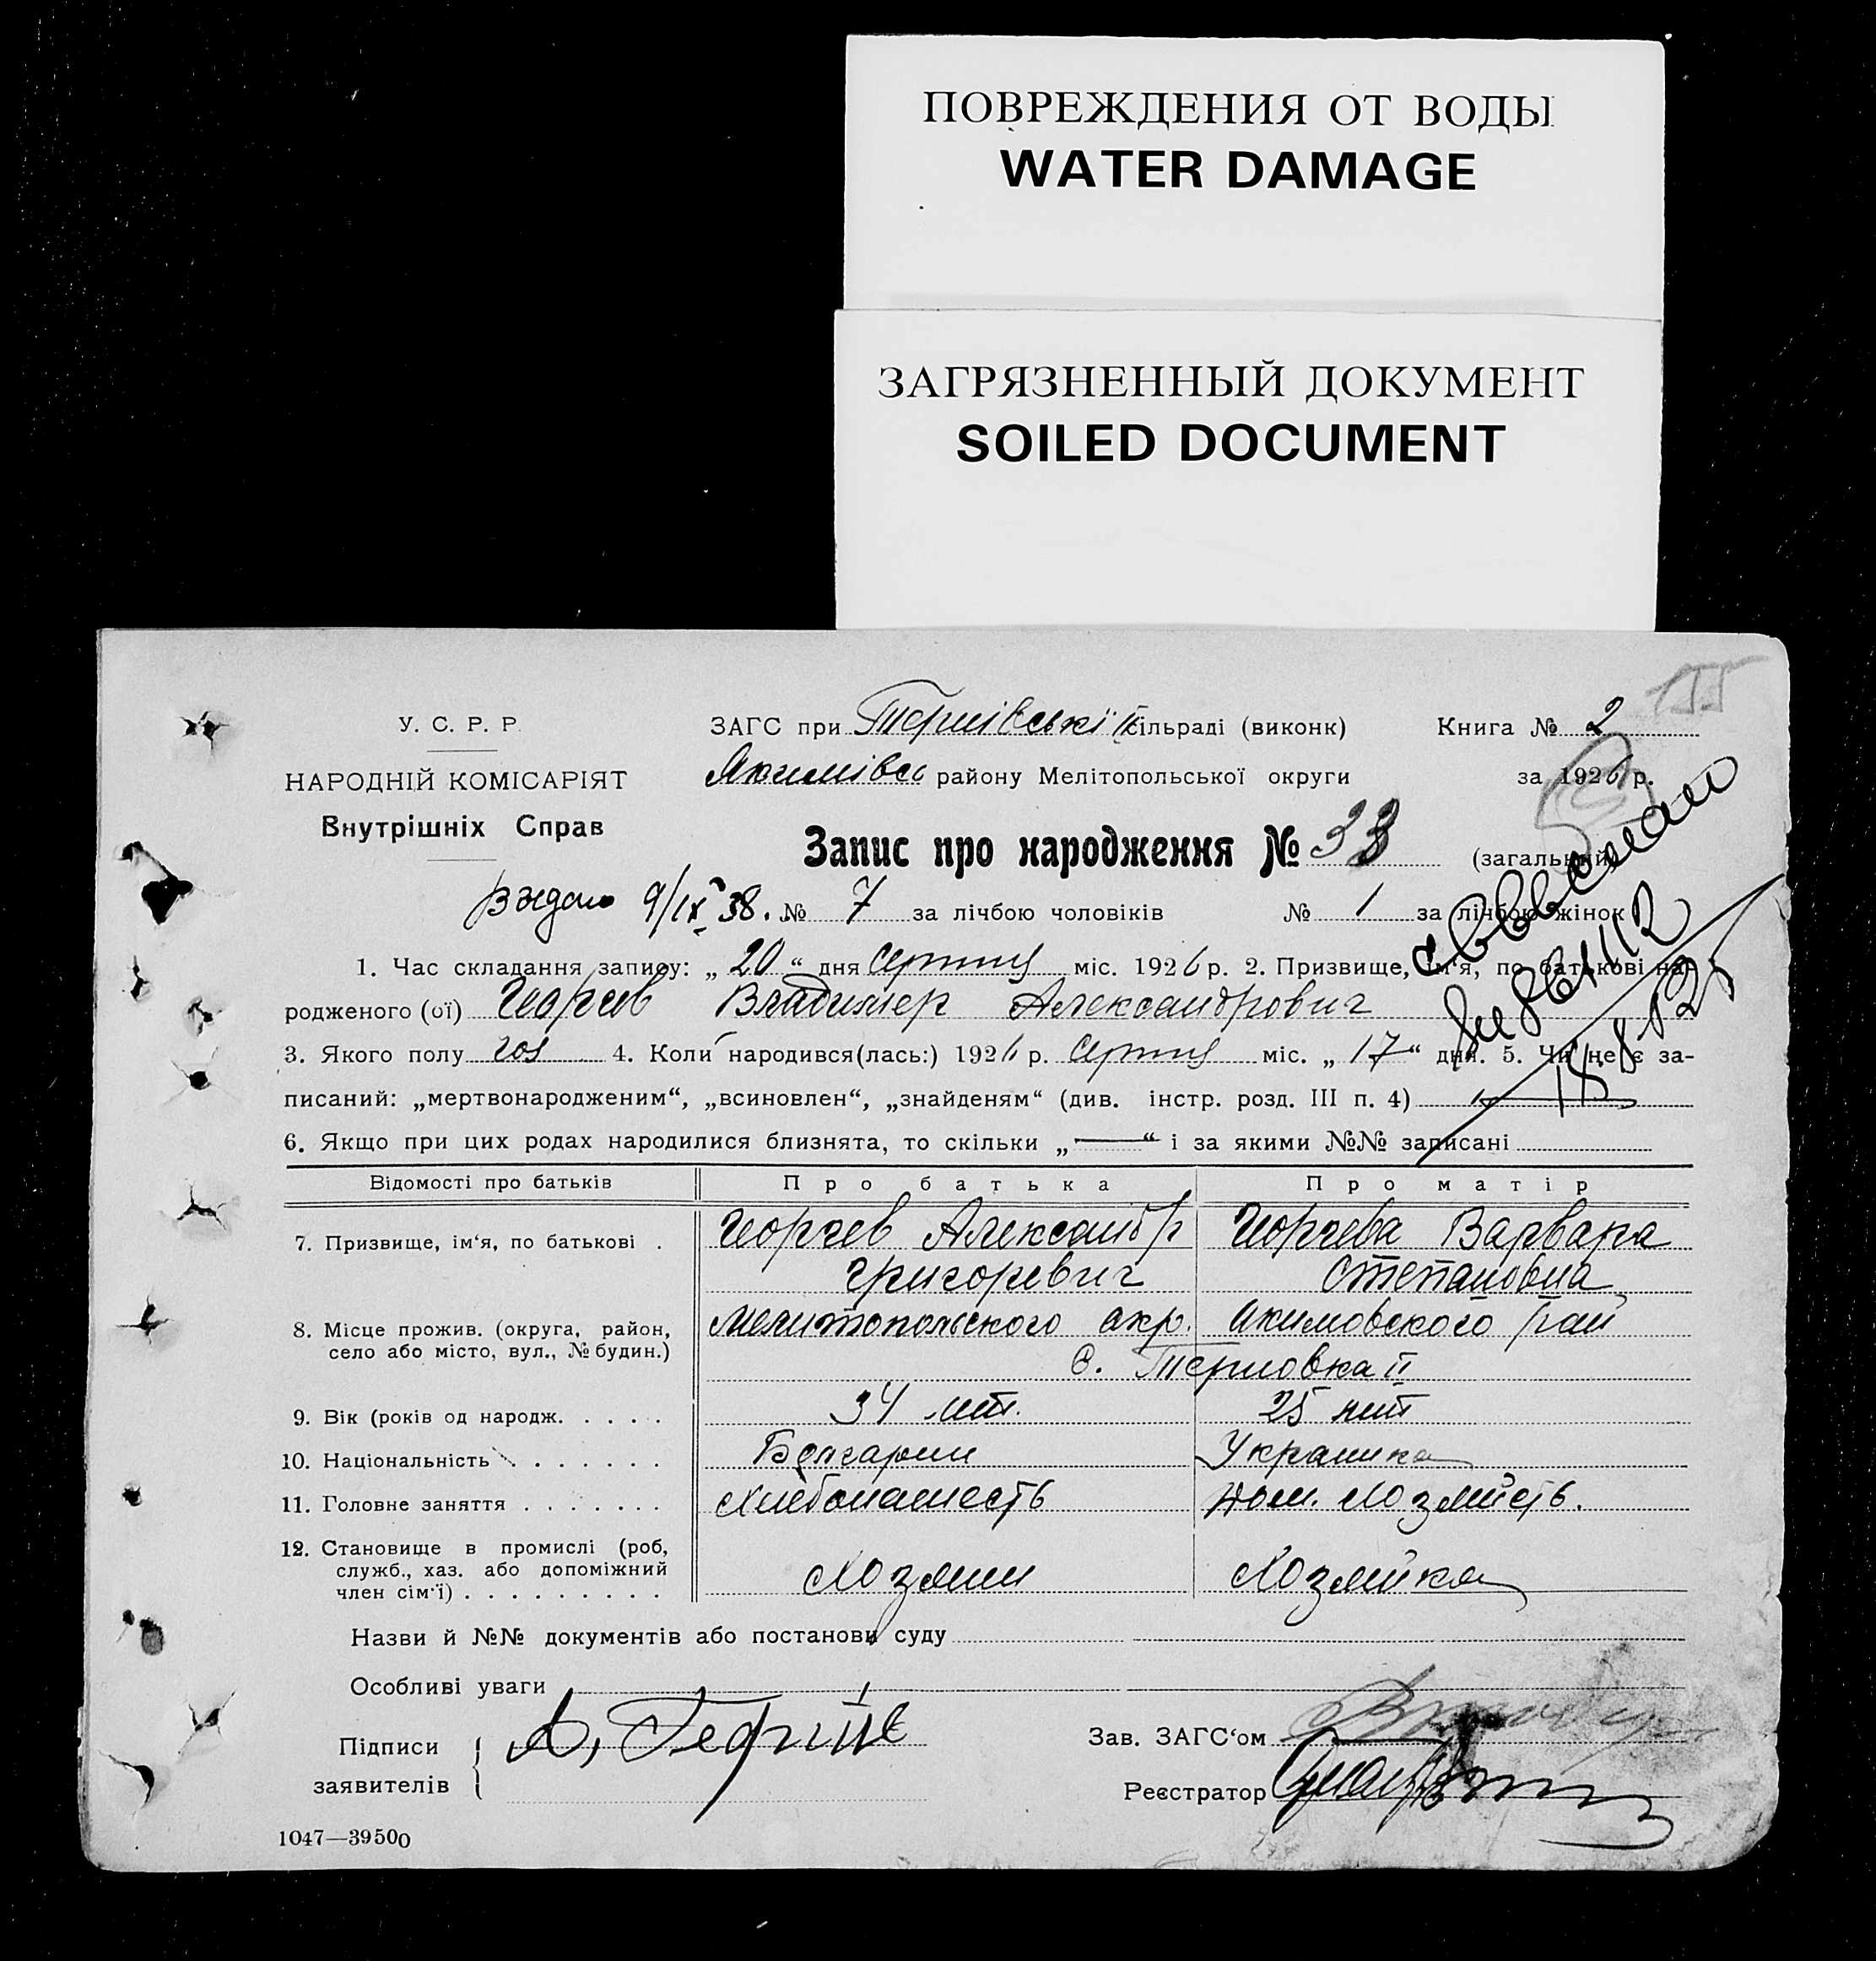 ПОВРЕЖДЕНИЯ ОТ ВОДЫ
WATER DAMAGE
ЗАГРЯЗНЕННЫЙ ДОКУМЕНТ
SOILED DOCUMENT
155
У. С. Р. Р.
ЗАГС при Тернівській сільраді (виконк)
Книга № 2
НАРОДНІЙ КОМІСАРІЯТ
Якимівс району Мелітопольської округи
за 1926 р.
Внутрішніх Справ
Запис про народження № 33 (загальний)
Видано 9/IX 38. № 7 за лічбою чоловіків № 1 за лічбою жінок
1. Час складання запису: „20“ дня серпня міс. 1926 р. 2. Призвище, ім'я, по батькові на-
родженого (ої) Георгиев Владимер Александрович
3. Якого полу чол 4. Коли народився(лась:) 1926 р. серпня міс. „17“ дня. 5. Чи не є за-
писаний: „мертвонародженим“, „всиновлен“, „знайденям“ (див. інстр. розд. III п. 4)
6. Якщо при цих родах народилися близнята, то скільки „—“ і за якими №№ записані
Відомості про батьків Про батька Про матір
7. Призвище, ім'я, по батькові . Георгиев Александр Георгиева Варвара
Григоревич Степановна
8. Місце прожив. (округа, район, Мелитопольского окр. Акимовского рай
село або місто, вул., № будин.) с. Терновка II
9. Вік (років од народж. . . . . 34 лет. 25 лет
10. Національність . . . . . . Болгарин Украинка
11. Головне заняття . . . . . . . Хлебопашесть Дом. хозяйсть.
12. Становище в промислі (роб,
служб., хаз. або допоміжний Хозяин Хозяйка
член сім'ї) . . . . . . . . .
Назви й №№ документів або постанови суду
Особливі уваги
Підписи
заявителів
Зав. ЗАГС'ом
Реєстратор
1047—39500